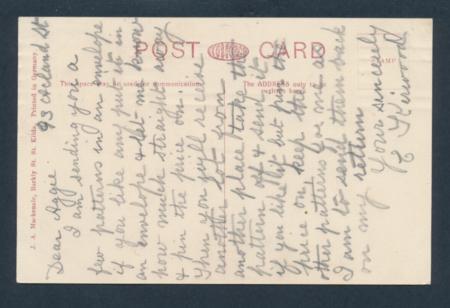 POST CARD
This space may be used for communications.
The ADDRESS only to be
J. A. Mackenzie, Barkly St. St. Kilda. Printed in Germany
93 Acland St
Dear Aggie
I am sending you a
few patterns in an envelope
if you like any put it in
an envelope & let me know
how much straight away
& pin the price on.
Then you will receive
another lot from
another place take the
pattern off & send it
if you like it but pin the
price on. keep the
other patterns for me as
I am to send them back
on my return
Yours sincerely